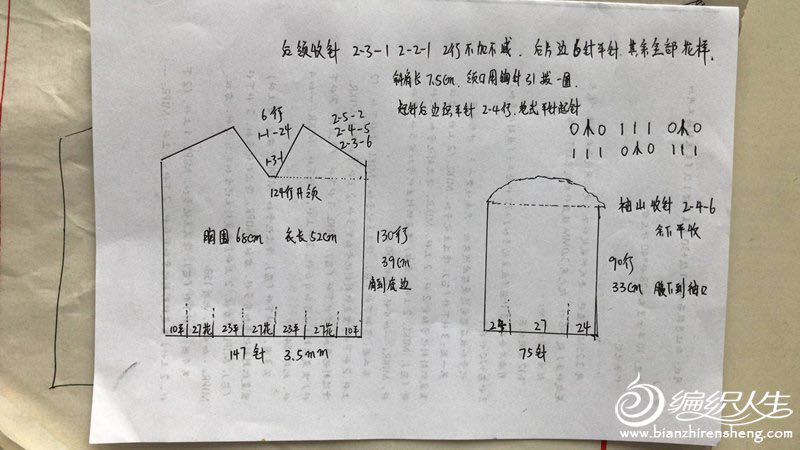 后领收针 2-3-1 2-2-1 2行不加不减. 后片边6针平针.其余全部花样.
斜肩长7.5cm, 领口用钩针引拔一圈.
起针后边织平针 2-4行,
6行
1-1-24
1-3-1
2-5-2
2-4-5
2-3-6
124行开领
胸围68cm 衣长52cm
130行
39cm
肩到底边
10平 27花 23平 27花 23平 27花 10平
147针 3.5mm
O人O 111 O人O
111 O人O 111
袖山收针 2-4-6
余下平收
90行
33cm 腋下到袖口
24 27 24
75针
编织人生
www.bianzhirensheng.com